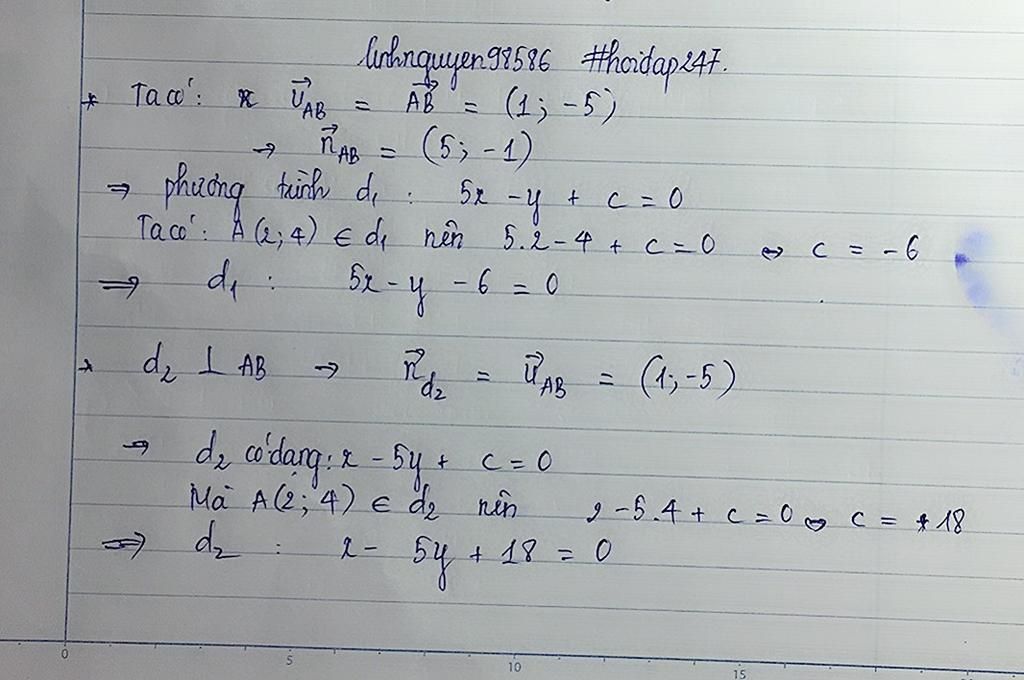 linhnguyen98586 #hoidap247.
* Ta có: x u⃗_AB = AB⃗ = (1; -5)
→ n⃗_AB = (5; -1)
⇒ phương trình d₁ : 5x - y + c = 0
Ta có: A(2; 4) ∈ d₁ nên 5.2 - 4 + c = 0 ⇔ c = -6
⇒ d₁ : 5x - y - 6 = 0
* d₂ ⊥ AB → n⃗_d₂ = u⃗_AB = (1; -5)
→ d₂ có dạng: x - 5y + c = 0
Mà A(2; 4) ∈ d₂ nên 2 - 5.4 + c = 0 ⇔ c = +18
⇒ d₂ : x - 5y + 18 = 0
0 5 10 15